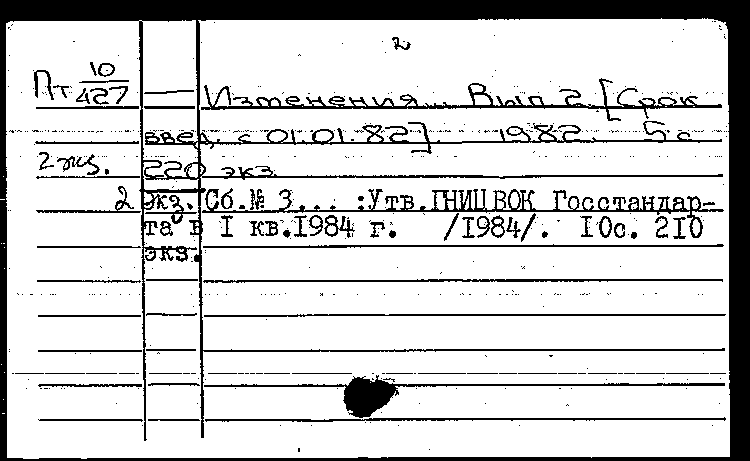 2
Пт 10/427 — Изменения... Вып 2 [Срок
введ. с 01.01.82]. 1982. 5 с.
2 экз. 220 экз.
2 экз. Сб.№ 3... :Утв.ГНИЦВОК Госстандар-
та в I кв.1984 г. /1984/. 10с. 210
экз.